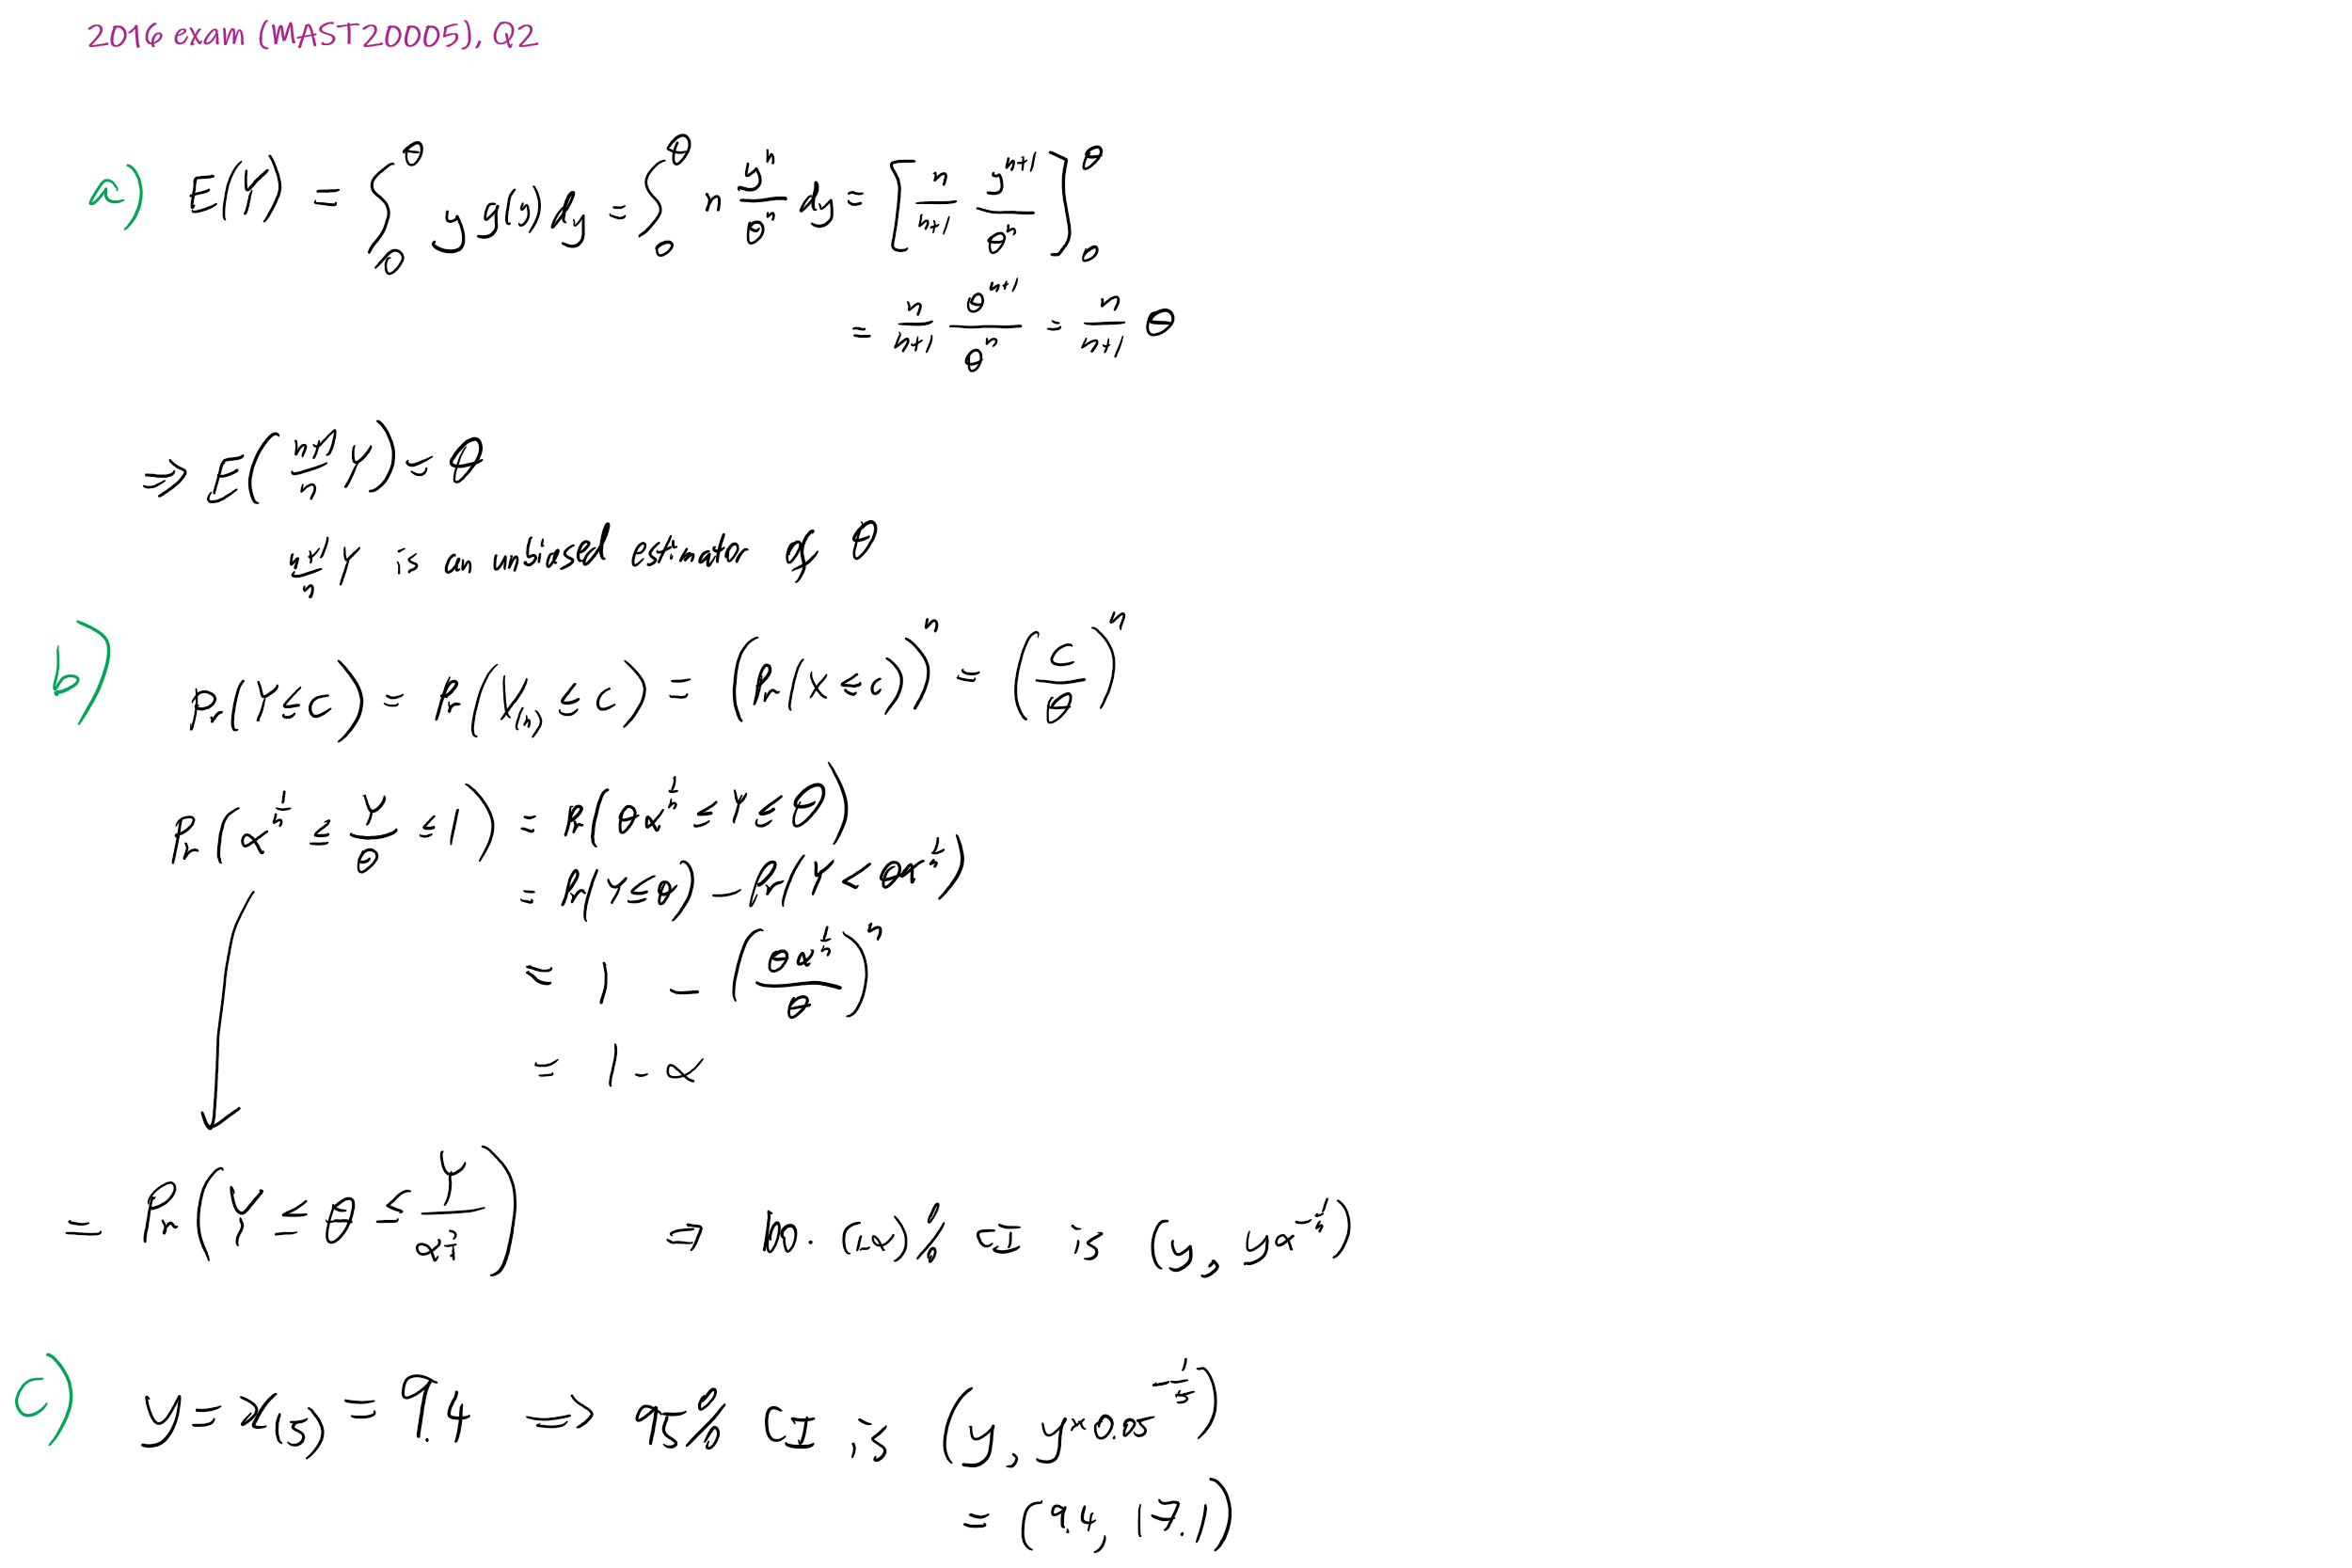 2016 exam (MAST20005), Q2
a) E(Y) = ∫₀^θ y g(y) dy = ∫₀^θ n yⁿ/θⁿ dy = [n/(n+1) yⁿ⁺¹/θⁿ]₀^θ
= n/(n+1) θⁿ⁺¹/θⁿ = n/(n+1) θ
⇒ E((n+1)/n Y) = θ
(n+1)/n Y is an unbiased estimator of θ
b) Pr(Y ≤ c) = Pr(X₍ₙ₎ ≤ c) = (Pr(X ≤ c))ⁿ = (c/θ)ⁿ
Pr(α^(1/n) ≤ Y/θ ≤ 1) = Pr(θα^(1/n) ≤ Y ≤ θ)
= Pr(Y ≤ θ) − Pr(Y < θα^(1/n))
= 1 − (θα^(1/n)/θ)ⁿ
= 1 − α
= Pr(Y ≤ θ ≤ Y/α^(1/n)) ⇒ 100·(1-α)% CI is (y, yα^(-1/n))
c) y = x₍₅₎ = 9.4 ⇒ 95% CI is (y, y×0.05^(-1/5))
= (9.4, 17.1)